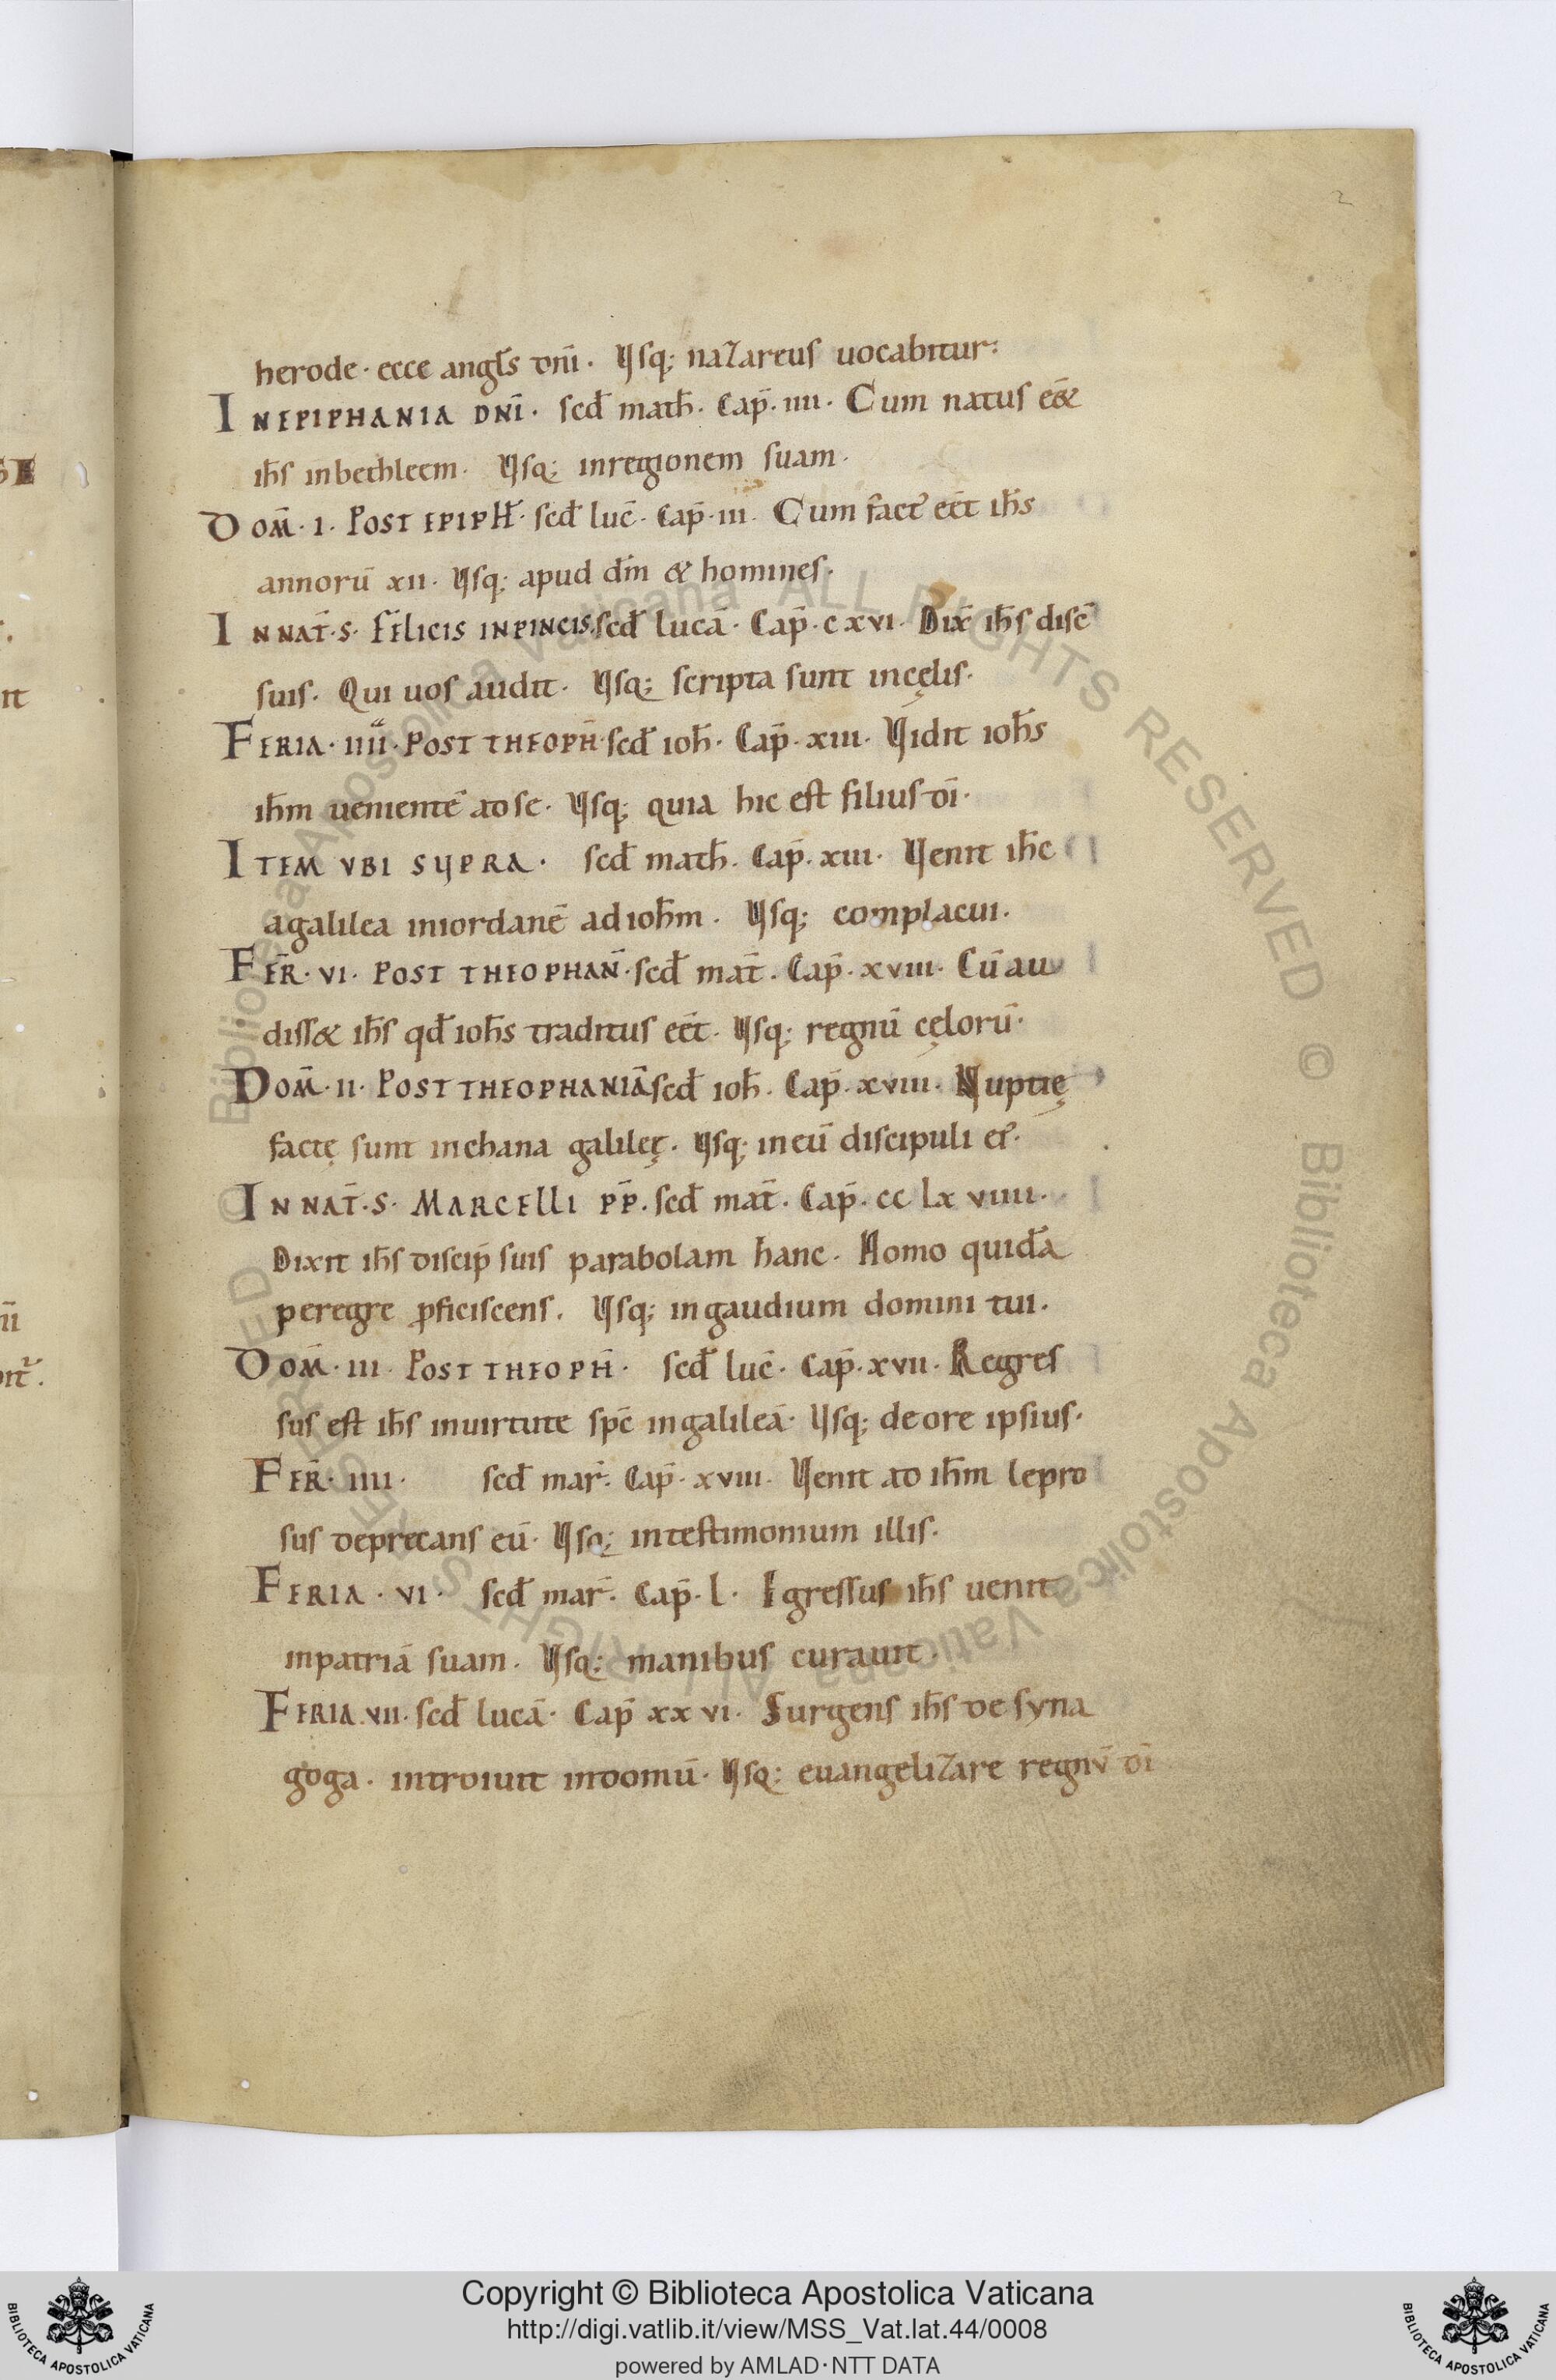 2
herode · ecce angl̄s dn̄i · Usq; nazareus uocabitur:
IN EPIPHANIA DN̄I · scd̄ math̄ · Cap̄ · iiii · Cum natus eē&
ih̄s inbethleem · Usq; inregionem suam ·
DOM̄ · I · POST EPIPH̄ · scd̄ luc̄ · Cap̄ · iii · Cum fact' eēt ih̄s
annorū xii · Usq; apud dm̄ & homines ·
IN NAT̄ · S · FELICIS INPINCIS · scd̄ lucā · Cap̄ · cxvi · Dix̄ ih̄s disc̄
suis · Qui uos audit · Usq; scripta sunt incęlis ·
FERIA · IIII · POST THEOPH̄ · scd̄ ioh̄ · Cap̄ · xiii · Uidit ioh̄s
ih̄m uenientē adse · Usq; quia hic est filius dī ·
ITEM UBI SUPRA · scd̄ math̄ · Cap̄ · xiii · Uenit ih̄c
agalilea iniordanē ad ioh̄m · Usq; complacui ·
FER̄ · VI · POST THEOPHAN̄ · scd̄ mat̄ · Cap̄ · xviii · Cū au
diss& ih̄s qd̄ ioh̄s traditus eēt · Usq; regnū cęlorū ·
DOM̄ · II · POST THEOPHANIĀ scd̄ ioh̄ · Cap̄ · xviii · Nuptię
factę sunt inchana galileę · Usq; in eū discipuli ei' ·
IN NAT̄ · S · MARCELLI PP̄ · scd̄ mat̄ · Cap̄ · cc lx viiii ·
Dixit ih̄s discip̄ suis parabolam hanc · Homo quidā
peregre ꝓficiscens · Usq; ingaudium domini tui ·
DOM̄ · III · POST THEOPH̄ · scd̄ luc̄ · Cap̄ · xvii · Regres
sus est ih̄s inuirtute sp̄c ingalileā · Usq; deore ipsius ·
FER̄ · IIII · scd̄ mar̄ · Cap̄ · xviii · Uenit ad ih̄m lepro
sus deprecans eū · Usq; intestimonium illis ·
FERIA · VI · scd̄ mar̄ · Cap̄ · l · Igressus ih̄s uenit
inpatriā suam · Usq; manibus curauit ·
FERIA · VII · scd̄ lucā · Cap̄ xxvi · Surgens ih̄s de syna
goga · introiuit indomū · Usq; euangelizare regnū dī
Biblioteca Apostolica Vaticana ALL RIGHTS RESERVED © Biblioteca Apostolica Vaticana ALL RIGHTS RESERVED ©
Copyright © Biblioteca Apostolica Vaticana
http://digi.vatlib.it/view/MSS_Vat.lat.44/0008
powered by AMLAD·NTT DATA
BIBLIOTECA APOSTOLICA VATICANA
BIBLIOTECA APOSTOLICA VATICANA